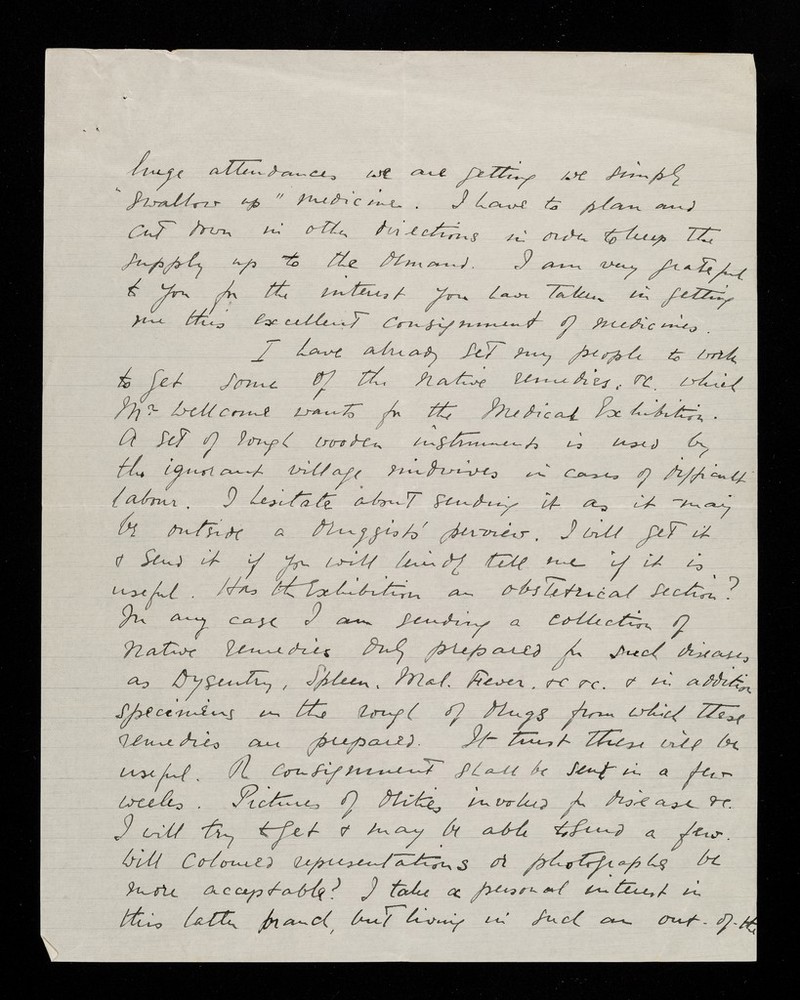 huge attendances we are getting we simply
"swallow up" medicine. I have to plan and
cut down in other directions in order to keep the
supply up to the demand. I am very grateful
to you for the interest you have taken in getting
me this excellent consignment of medicines.
I have already set my people to work
to get some of the native remedies, &c. which
Mr. Wellcome wants for the Medical Exhibition.
A set of rough wooden instruments is used by
the ignorant village midwives in cases of difficult
labour. I hesitate about sending it as it may
be outside a druggists' perview. I will get it
& send it if you will kindly tell me if it is
useful. Has th Exhibition an obstetrical section?
In any case I am sending a collection of
native remedies duly prepared for such diseases
as Dysentry, Spleen, Mal. Fever, &c &c. & in addition
specimens in the rough of drugs from which these
remedies are prepared. It trust these will be
useful. A consignment shall be sent in a few
weeks. Pictures of dieties invoked for disease &c.
I will try to get & may be able to send a few.
Will coloured representations or photographs be
more acceptable? I take a personal interest in
this latter brand, but living in such an out-of-the